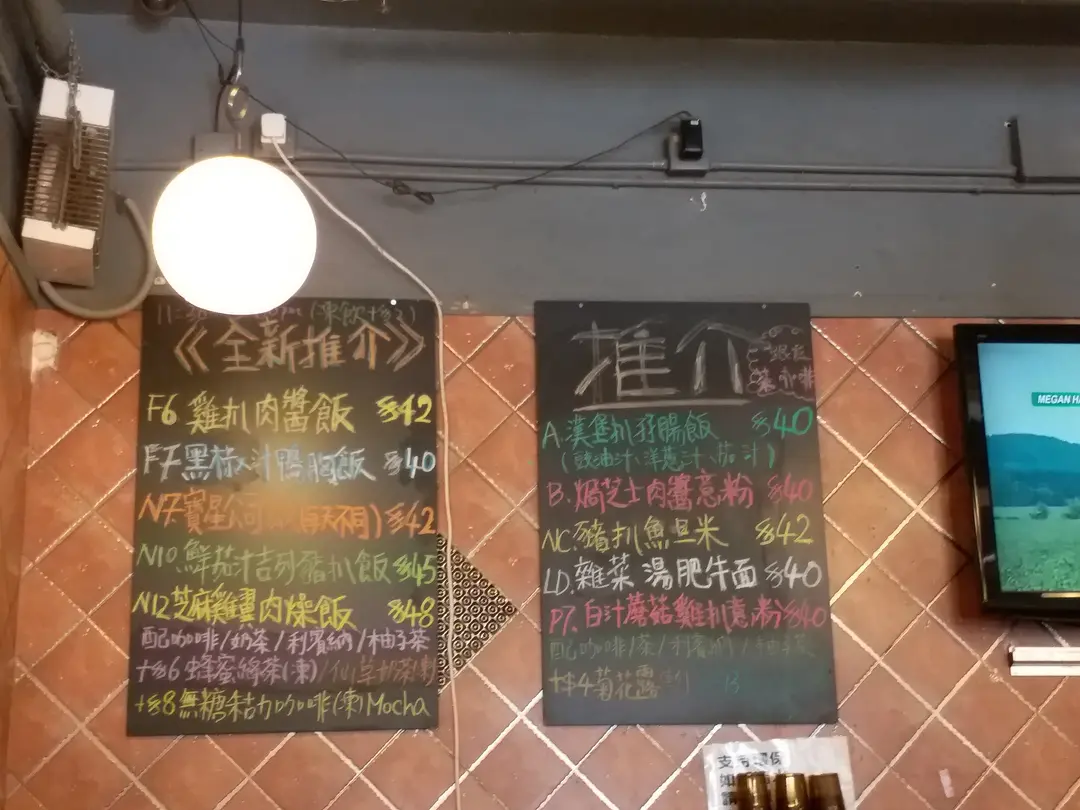 (凍飲+$2)
《全新推介》
F6 雞扒肉醬飯 $42
F7 黑椒汁鴨胸飯 $40
N7. 寶星公司 不同) $42
N10. 鮮茄汁吉列豬扒飯 $45
N12 芝麻雞翼肉燥飯 $48
配咖啡/奶茶/利賓納/柚子茶
+$6 蜂蜜綠茶(凍)/仙草奶茶(凍)
+$8 無糖桔咖啡(凍)Mocha
推介
A. 漢堡扒孖腸飯 $40
(豉油汁、洋葱汁、茄汁)
B. 焗芝士肉醬意粉 $40
NC. 豬扒魚旦米 $42
LD. 雜菜湯肥牛面 $40
P7. 白汁蘑菇雞扒意粉 $40
配咖啡/茶/利賓納/柚子茶
+$4 菊花露
MEGAN HA
支持環保
如